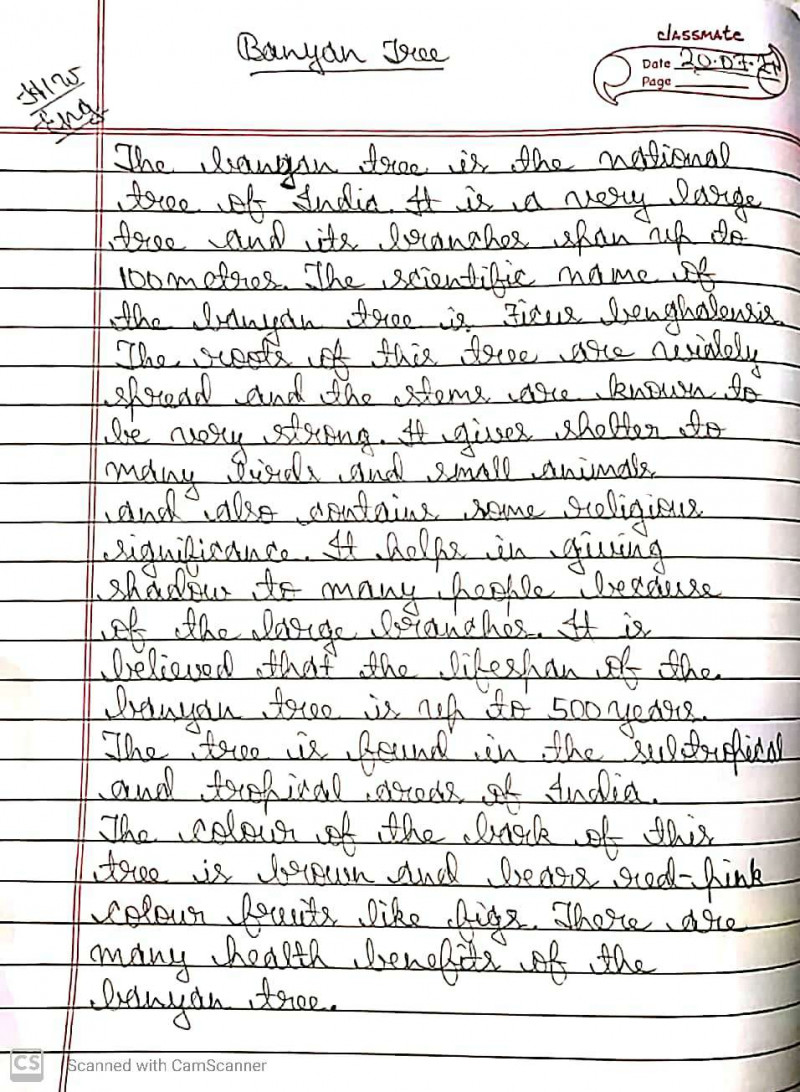 Banyan Tree
classmate
Date 20.07.21
Page
H/W
Eng
The banyan tree is the national
tree of India. It is a very large
tree and its branches span up to
100 metres. The scientific name of
the banyan tree is Ficus benghalensis.
The roots of this tree are widely
spread and the stems are known to
be very strong. It gives shelter to
many birds and small animals
and also contains some religious
significance. It helps in giving
shadow to many people because
of the large branches. It is
believed that the lifespan of the
banyan tree is up to 500 years.
The tree is found in the subtropical
and tropical areas of India.
The colour of the bark of this
tree is brown and bears red-pink
colour fruits like figs. There are
many health benefits of the
banyan tree.
CS Scanned with CamScanner